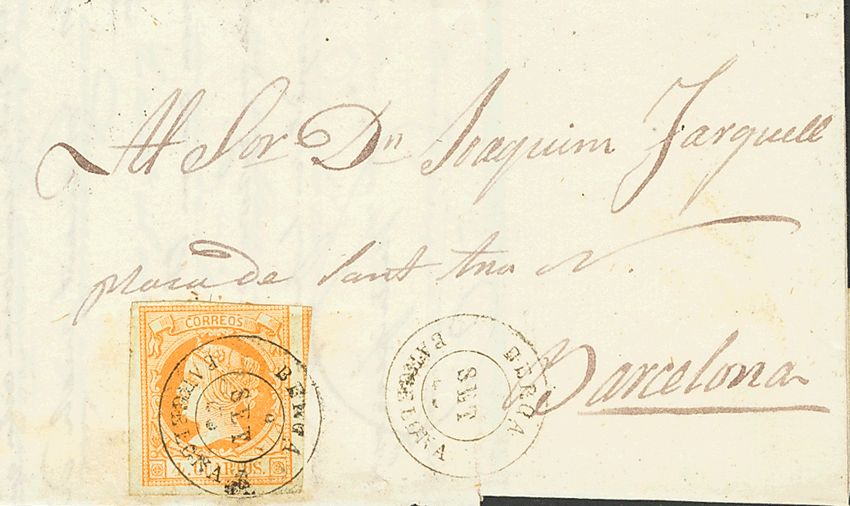 Al Sor Dn Joaquim Farguell
plaza de Sant Ana N.
Barcelona
CORREOS
4 CUARTOS.
BERGA
SET
BARCELONA
BERGA
SET
BARCELONA